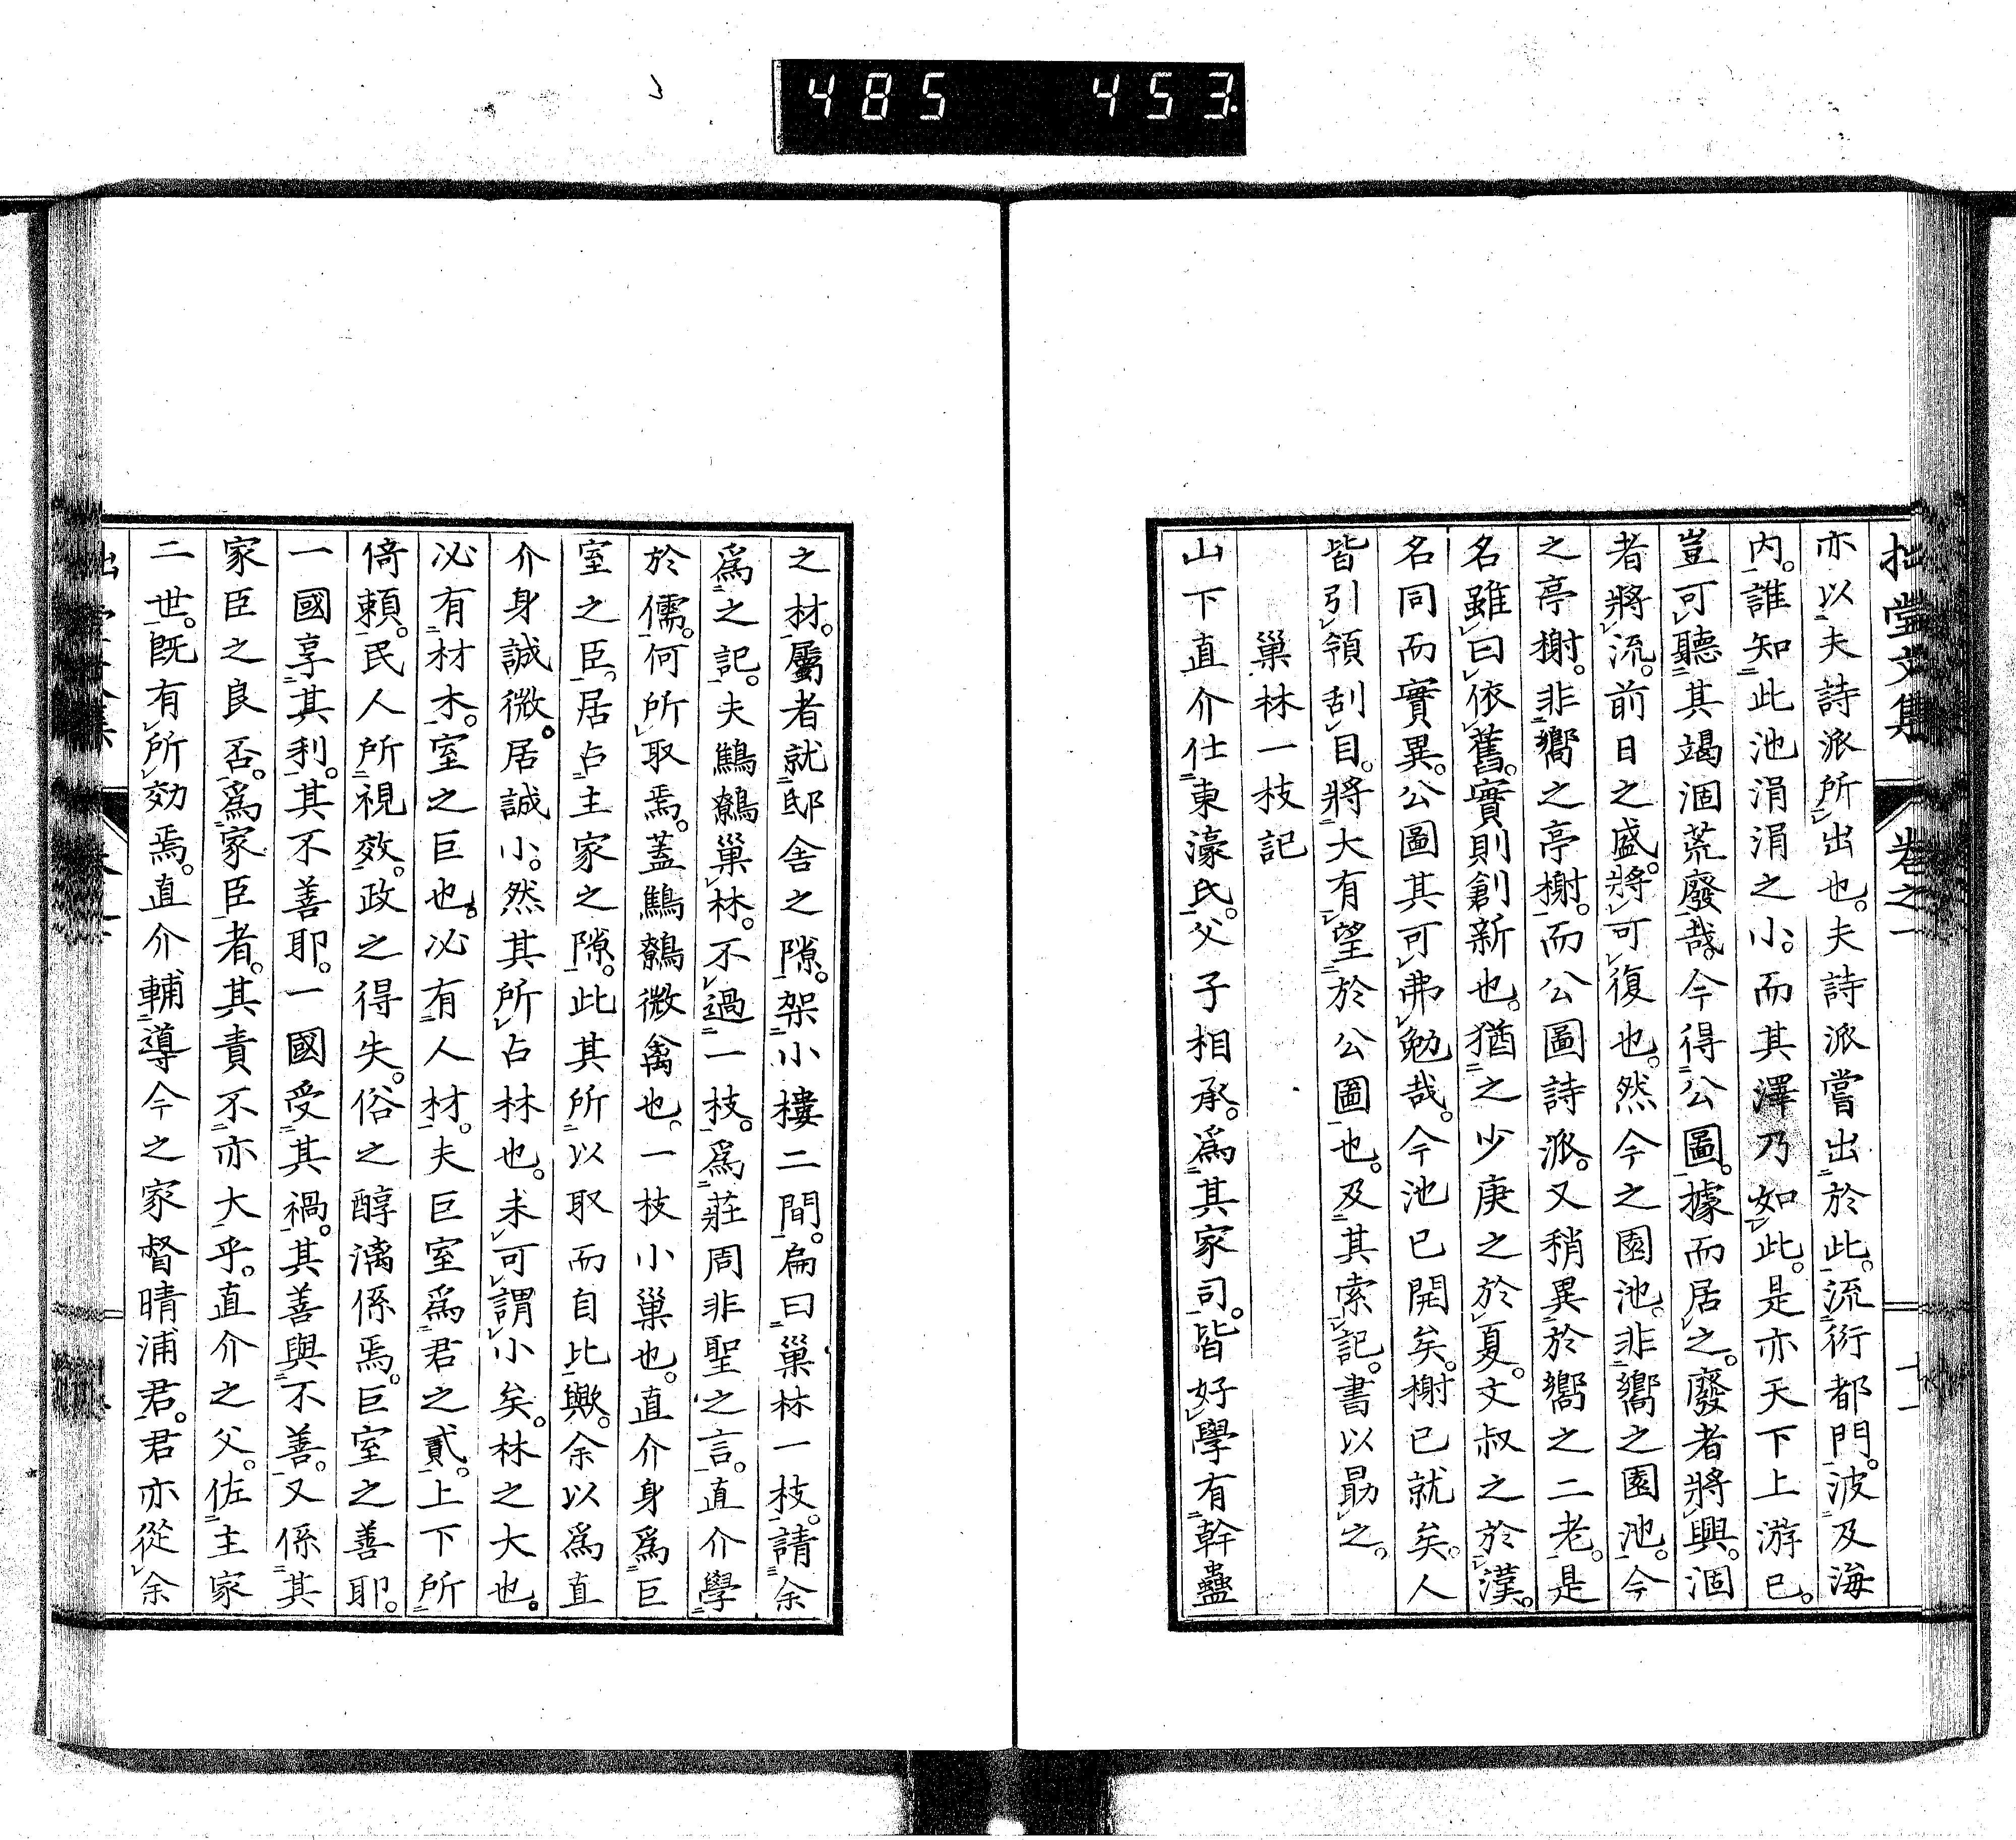 485 453
拙堂文集 卷之一 十一
亦以夫詩派所出也。夫詩派嘗出於此。流衍都門。波及海
内。誰知此池涓涓之小。而其澤乃如此。是亦天下上游已。
豈可聽其竭涸荒廢哉。今得公圖。據而居之。廢者將興。涸
者將流。前日之盛。將可復也。然今之園池。非嚮之園池。今
之亭榭。非嚮之亭榭。而公圖詩派。又稍異於嚮之二老。是
名雖曰依舊。實則創新也。猶之少庚之於夏。文叔之於漢。
名同而實異。公圖其可弗勉哉。今池已開矣。榭已就矣。人
皆引領刮目。將大有望於公圖也。及其索記。書以勗之。
巢林一枝記
山下直介仕東濠氏。父子相承。爲其家司。皆好學有幹蠱
之材。屬者就邸舍之隙。架小樓二間。扁曰巢林一枝。請余
爲之記。夫鷦鷯巢林。不過一枝。爲莊周非聖之言。直介學
於儒。何所取焉。蓋鷦鷯微禽也。一枝小巢也。直介身爲巨
室之臣。居占主家之隙。此其所以取而自比歟。余以爲直
介身誠微。居誠小。然其所占林也。未可謂小矣。林之大也。
必有材木。室之巨也。必有人材。夫巨室爲君之貳。上下所
倚賴。民人所視效。政之得失。俗之醇漓係焉。巨室之善耶。
一國享其利。其不善耶。一國受其禍。其善與不善。又係其
家臣之良否。爲家臣者。其責不亦大乎。直介之父。佐主家
二世。既有所効焉。直介輔導今之家督晴浦君。君亦從余